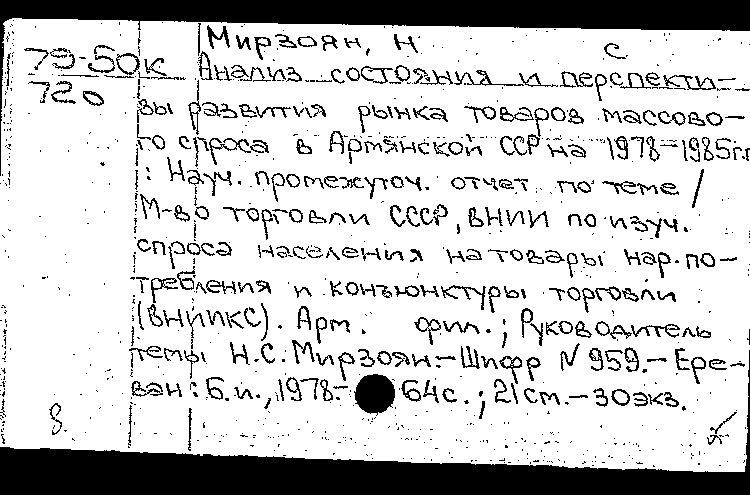 Мирзоян, Н С
79-50к
720
Анализ состояния и перспекти-
вы развития рынка товаров массово-
го спроса в Армянской ССР на 1978-1985гг.
: Науч. промежуточ. отчет по теме /
М-во торговли СССР, ВНИИ по изуч.
спроса населения на товары нар. по-
требления и конъюнктуры торговли
(ВНИИКС). Арм. фил.; Руководитель
темы Н.С. Мирзоян.- Шифр N 959.- Ере-
ван: Б.и., 1978.- 64с.; 21 см.- 30экз.
8.